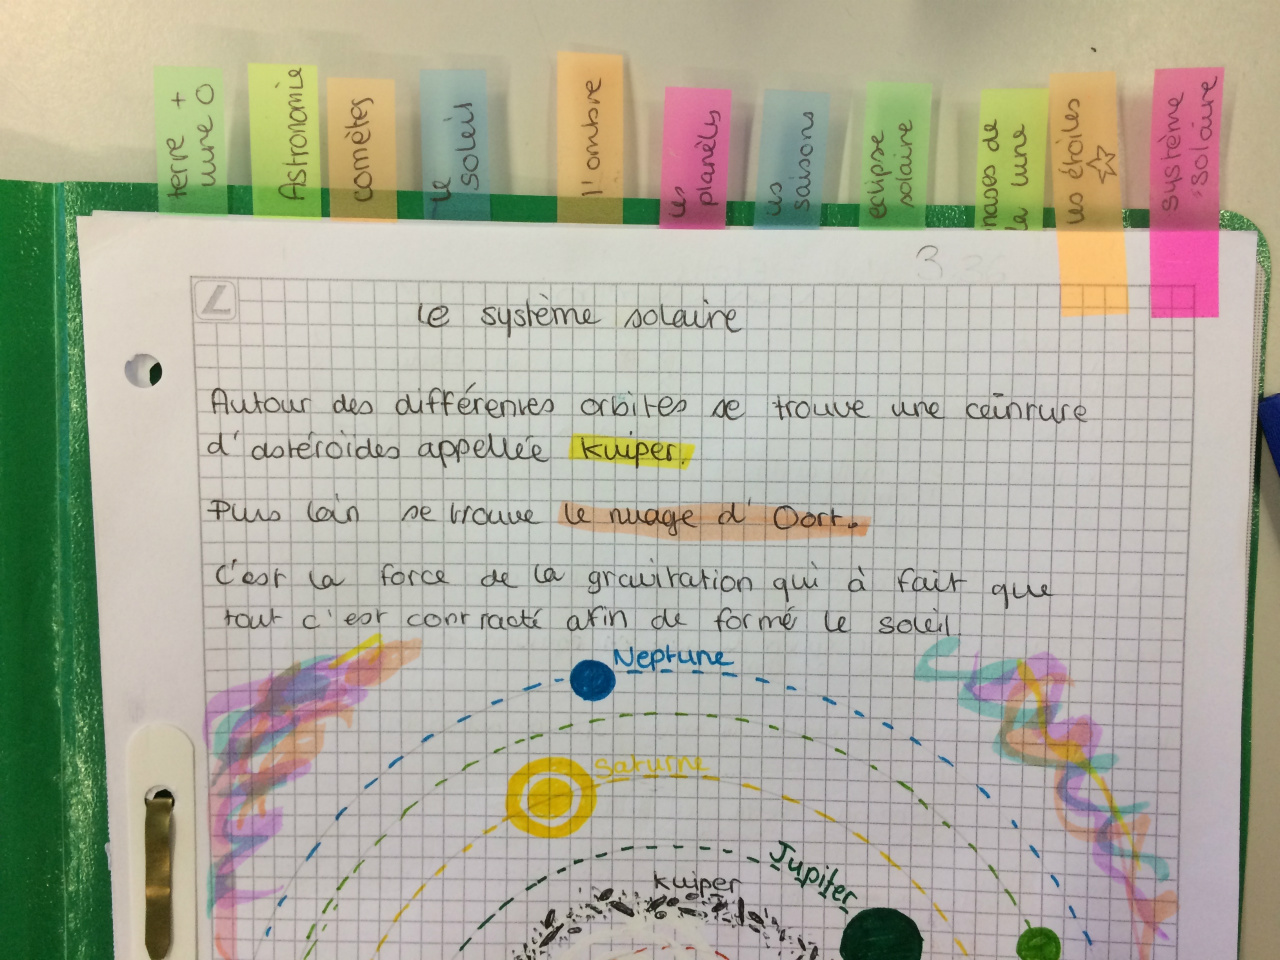 terre +
lune O
Astronomie
comètes
le
soleil
l'ombre
les
planèts
les
saisons
eclipse
solaire
hases de
la lune
les étoiles
système
solaire
3
L
le système solaire
Autour des différentes orbites se trouve une ceinture
d'astéroïdes appellée Kuiper.
Plus loin se trouve le nuage d'Oort.
C'est la force de la gravitation qui à fait que
tout c'est contracté afin de formé le soleil
Neptune
Saturne
Jupiter
Kuiper